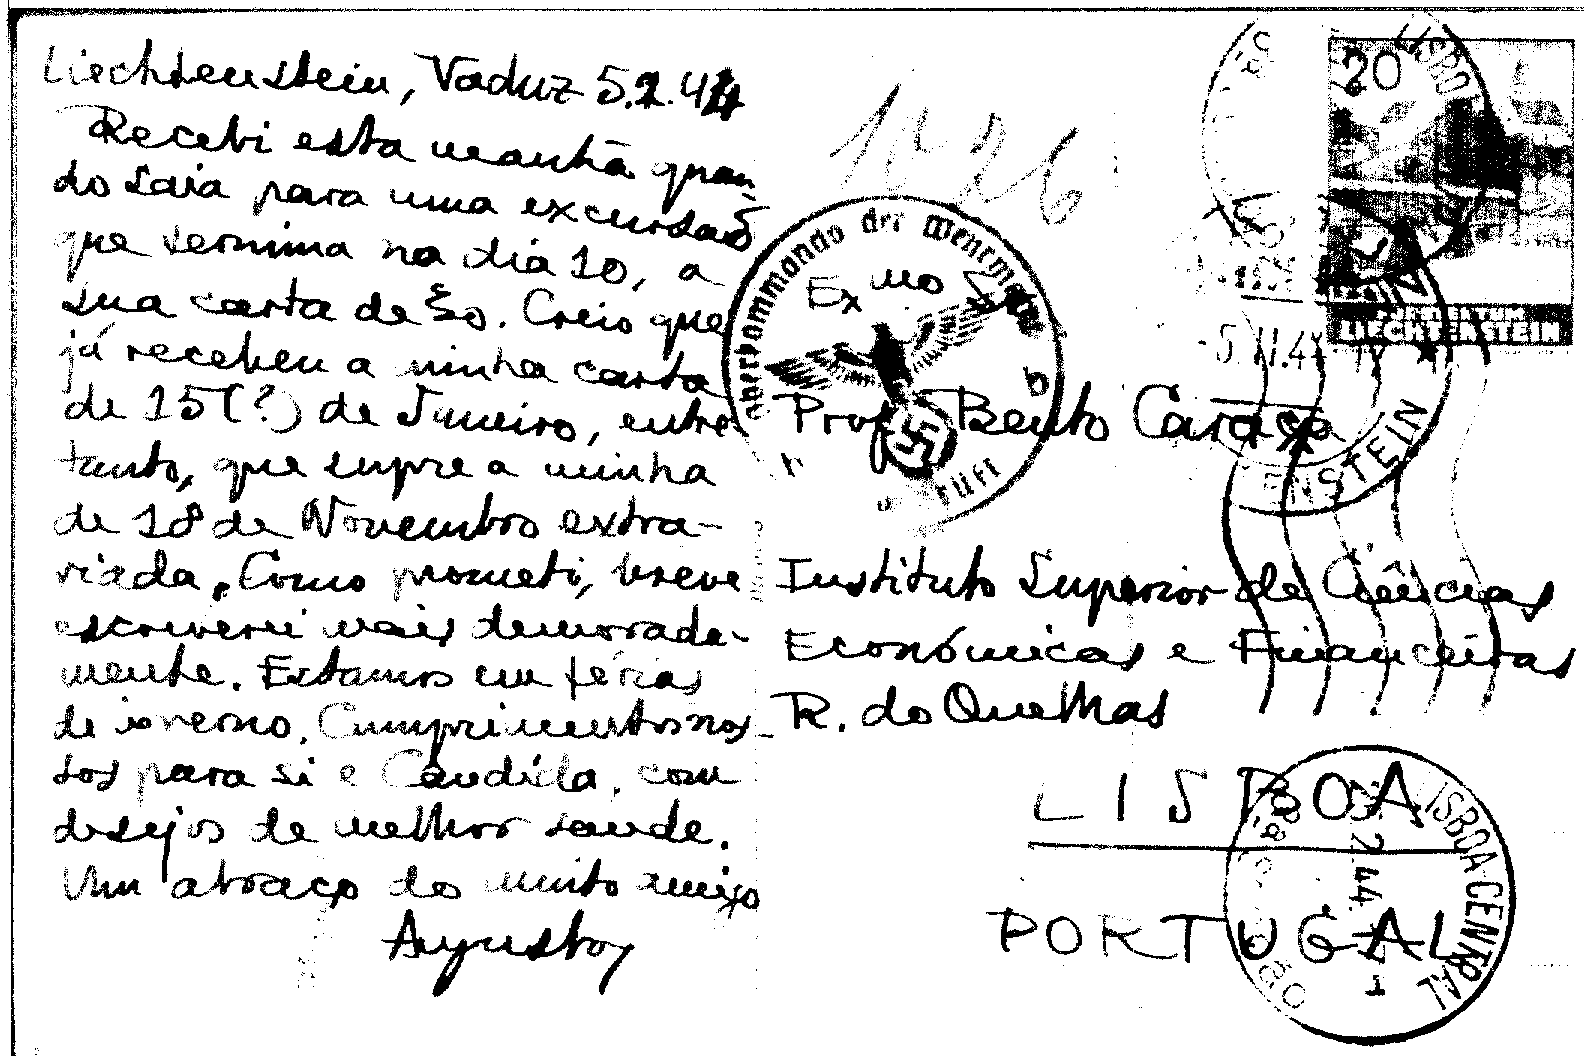 Liechtenstein, Vaduz 5.2.44
Recebi esta manhã quan-
do saia para uma excursão
que termina no dia 10, a
sua carta de 30. Creio que
já recebeu a minha carta
de 15(?) de Janeiro, entre-
tanto, que supre a minha
de 18 de Novembro extra-
viada. Como prometi, breve
escreverei mais demorada-
mente. Estamos em férias
de inverno. Cumprimentos nos-
sos para si e Candida, com
desejos de melhor saude.
Um abraço do muito amigo
Augusto
1026
Oberkommando der Wehrmacht
b
rüft
Exmo
Prof. Bento Caraça
Instituto Superior de Ciências
Económicas e Financeiras
R. do Quelhas
LISBOA
PORTUGAL
20
FÜRSTENTUM
LIECHTENSTEIN
-5.II.44
ENSTEIN
LISBOA CENTRAL
2.44